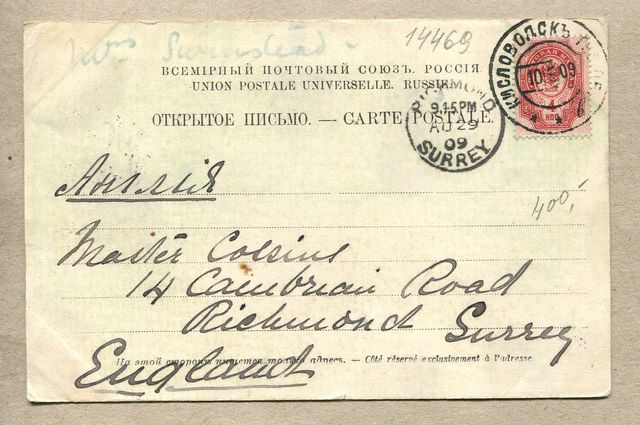 Mrs
14469
ВСЕМІРНЫЙ ПОЧТОВЫЙ СОЮЗЪ. РОССІЯ
UNION POSTALE UNIVERSELLE. RUSSIE
ОТКРЫТОЕ ПИСЬМО. — CARTE POSTALE.
КИСЛОВОДСКЪ
10 09
RICHMOND
9.15PM
AU 29
09
SURREY
Англія
400,-
Master
14 Cambrian Road
Richmond Surrey
На этой сторонѣ пишется только адресъ. — Côté réservé exclusivement à l'adresse.
England